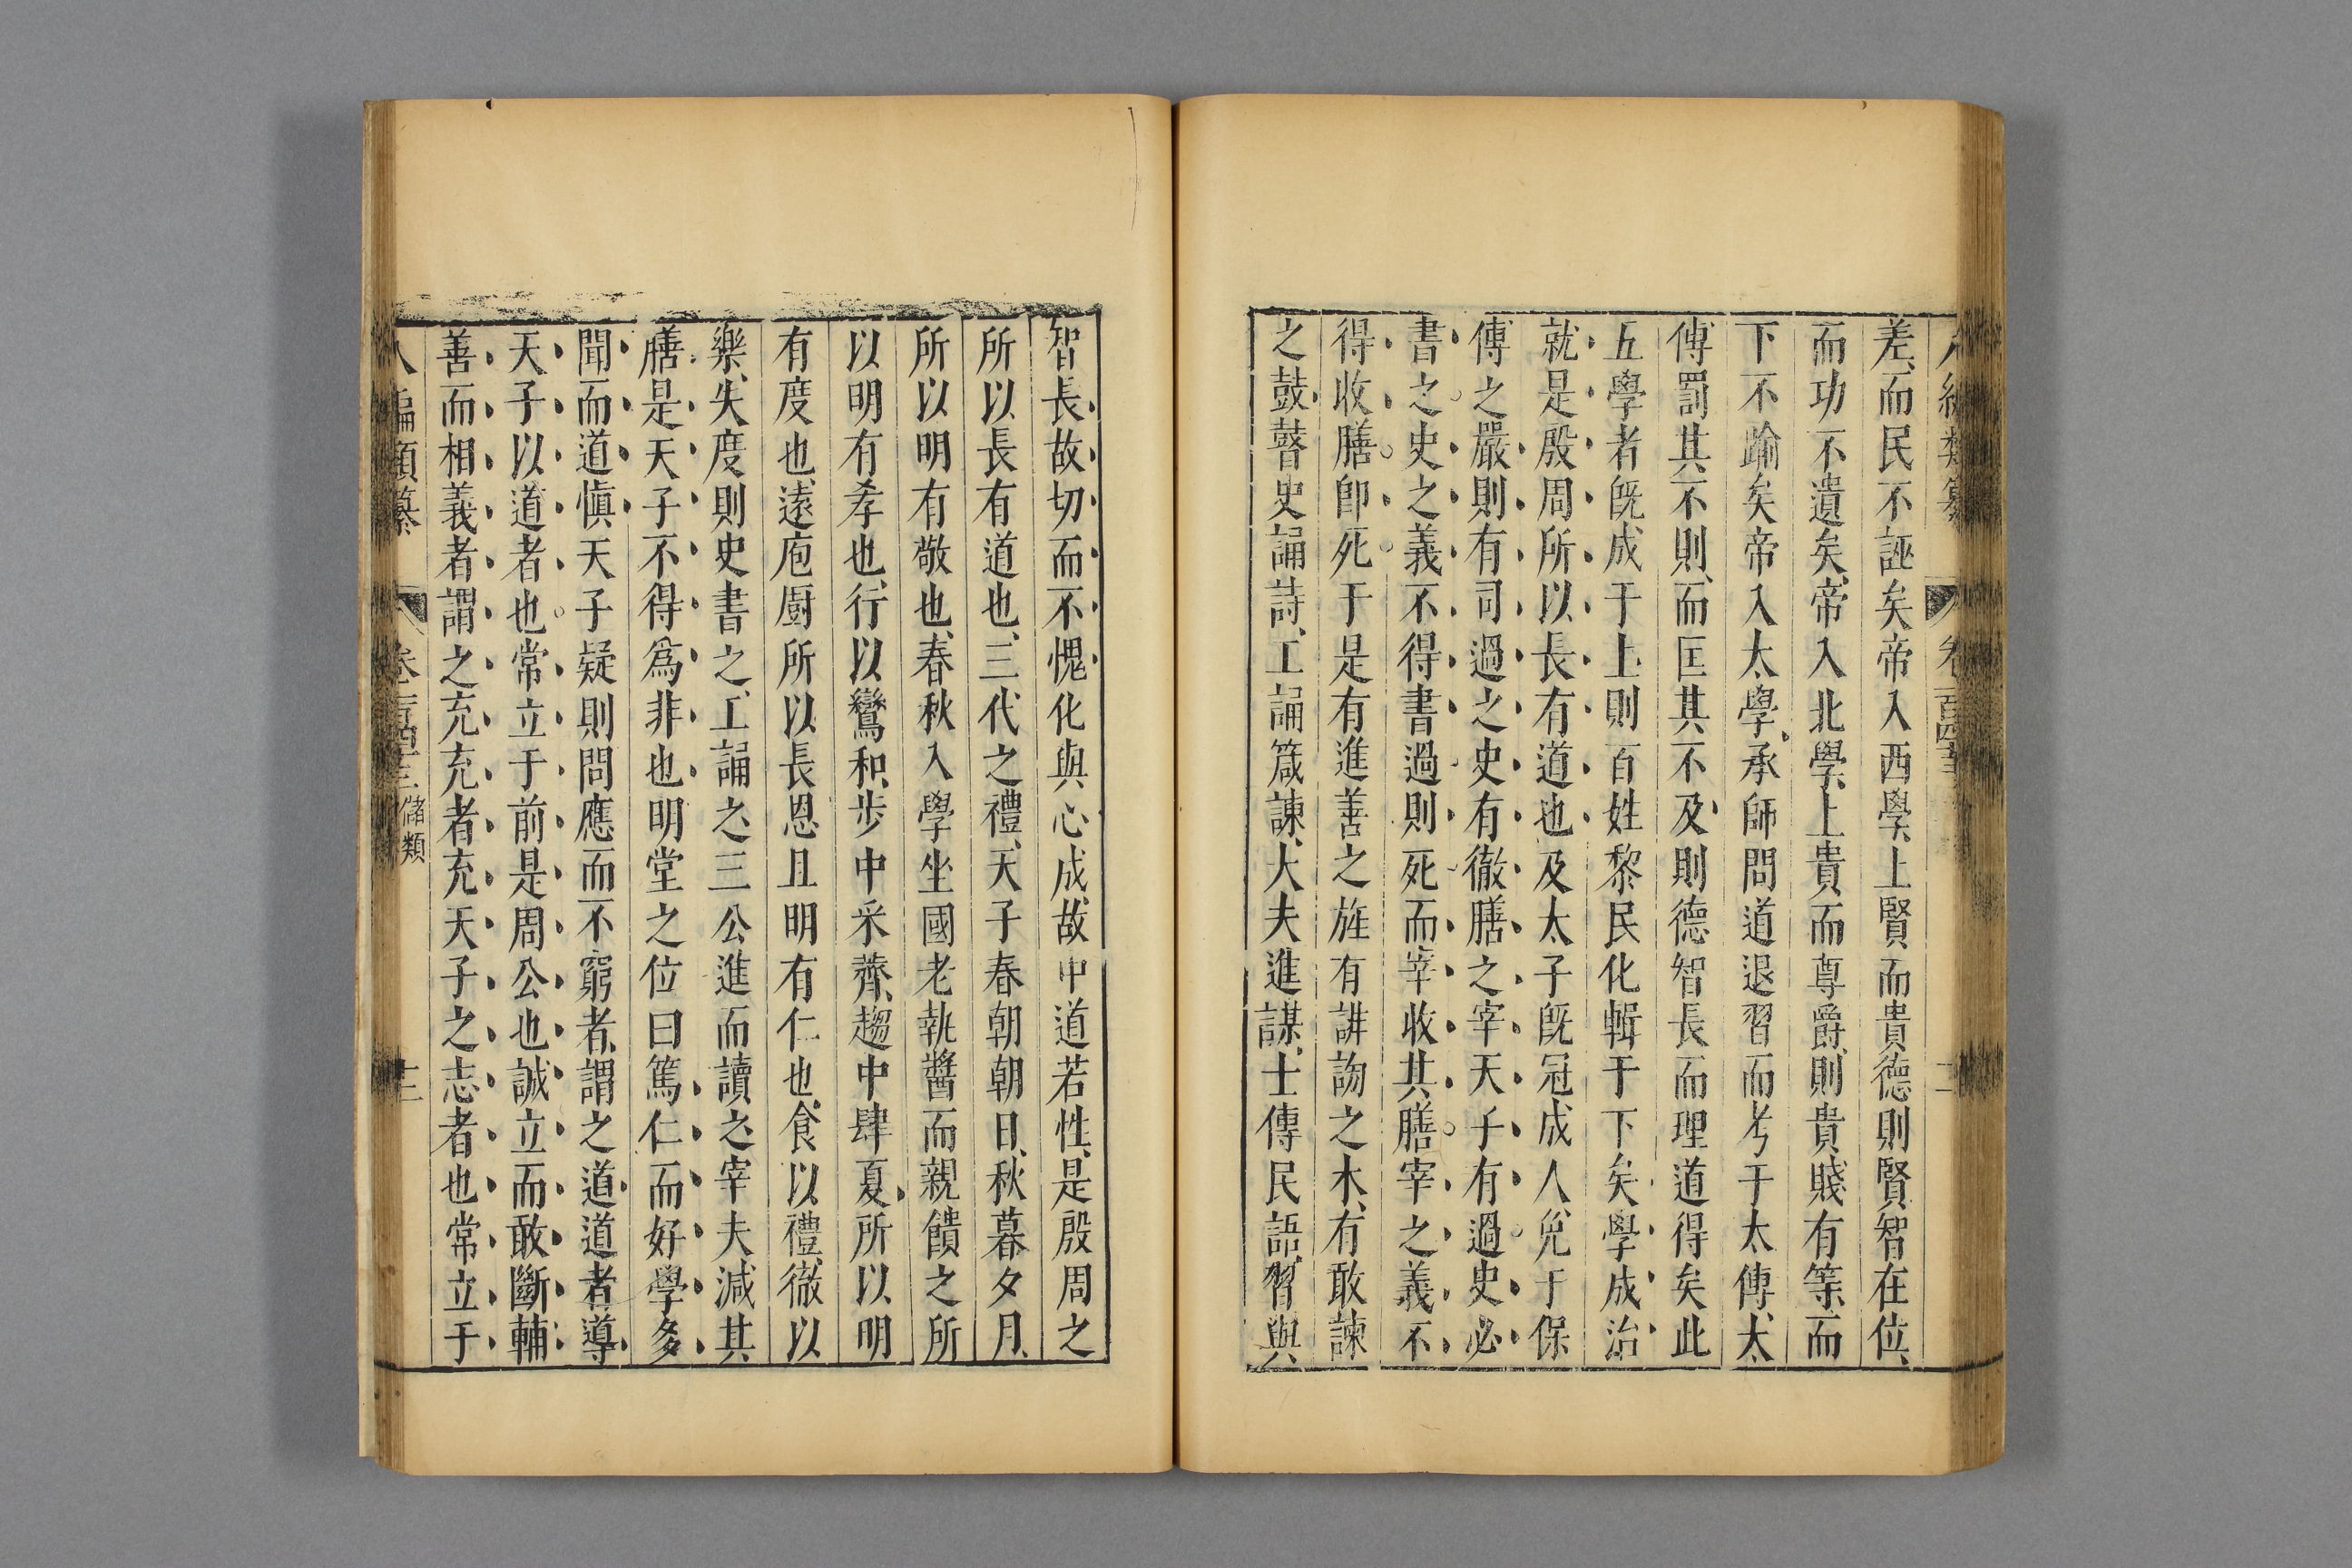 差而民不誣矣帝入西學上賢而貴德則賢智在位
而功不遺矣帝入北學上貴而尊爵則貴賤有等而
下不踰矣帝入太學承師問道退習而考于太傅太
傅罰其不則而匡其不及則德智長而理道得矣此
五學者旣成于上則百姓黎民化輯于下矣學成治
就是殷周所以長有道也及太子旣冠成人免于保
傅之嚴則有司過之史有徹膳之宰天子有過史必
書之史之義不得書過則死而宰收其膳宰之義不
得收膳卽死于是有進善之旌有誹謗之木有敢諫
之鼓瞽史誦詩工誦箴諫大夫進謀士傳民語習與
智長故切而不愧化與心成故中道若性是殷周之
所以長有道也三代之禮天子春朝朝日秋暮夕月
所以明有敬也春秋入學坐國老執醬而親饋之所
以明有孝也行以鸞和步中采薺趨中肆夏所以明
有度也遠庖厨所以長恩且明有仁也食以禮徹以
樂失度則史書之工誦之三公進而讀之宰夫減其
膳是天子不得爲非也明堂之位曰篤仁而好學多
聞而道愼天子疑則問應而不窮者謂之道道者導
天子以道者也常立于前是周公也誠立而敢斷輔
善而相義者謂之充充者充天子之志者也常立于
八編類纂 儲類